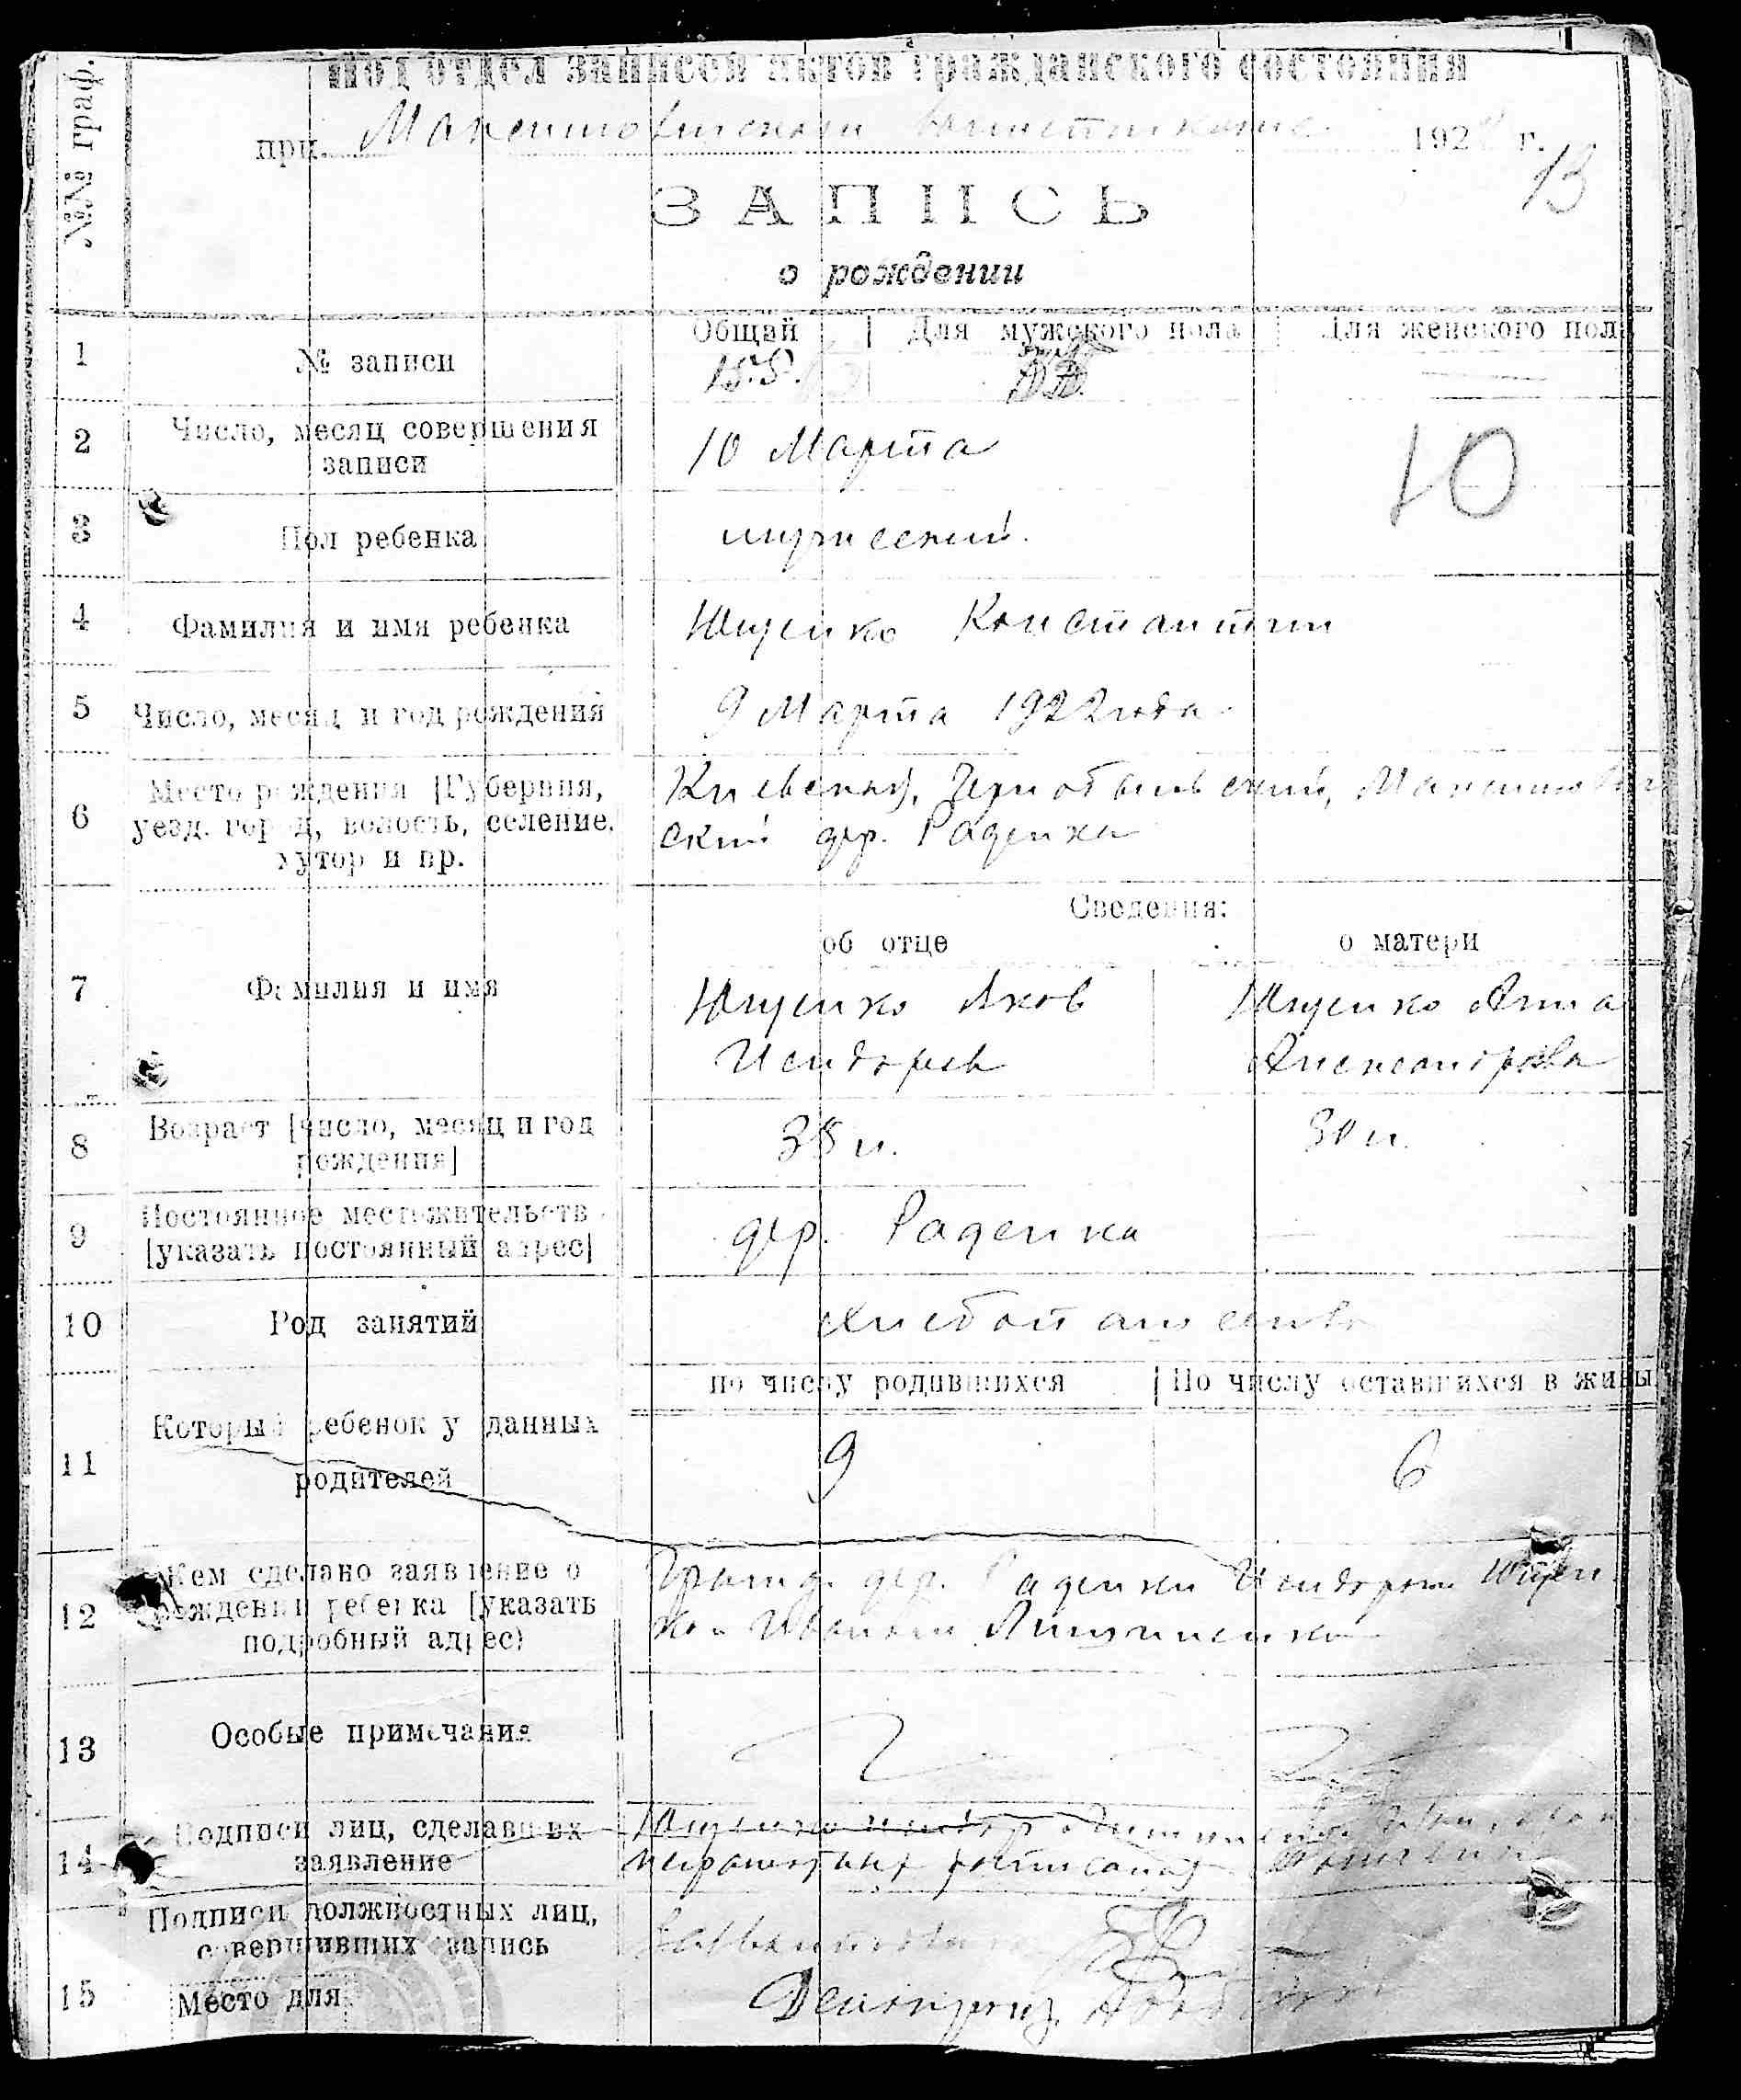 №№ граф.
Подотдел записей актов гражданского состояния
при Максимовическом 192 г.
13
ЗАПИСЬ
о рождении
Общай | Для мужского пола | Для женского пола
1 № записи 155.
2 Число, месяц совершения
записи
10 Марта
10
3 Пол ребенка мужеский.
4 Фамилия и имя ребенка Ющенко Константин
5 Число, месяц и год рождения 9 Марта 1922 года
6 Место рождения [Губерния,
уезд. город, волость, селение,
хутор и пр.
Киевской, Чернобыльский, Максимович
ский дер. Раденка
Сведения:
об отце о матери
7 Фамилия и имя
Ющенко Яков Ющенко Анна
Исидоров Александрова
8 Возраст [число, месяц и год
рождения]
38 л. 30 л.
9 Постоянное местожительств
[указать постоянный адрес]
дер. Раденка
10 Род занятий хлебопашество
по числу родившихся | По числу оставшихся в живы
11 Который ребенок у данных
родителей
9 6
12 Кем сделано заявление о
рождении ребенка [указать
подробный адрес)
Гражд. дер. Раденки Исидором Ющен
ко и Иваном
13 Особые примечания
14 Подписи лиц, сделавших
заявление
Ющенко Исидор
неграмотных расписался
Подписи должностных лиц,
совершивших запись
15 Место для
Делопроиз.